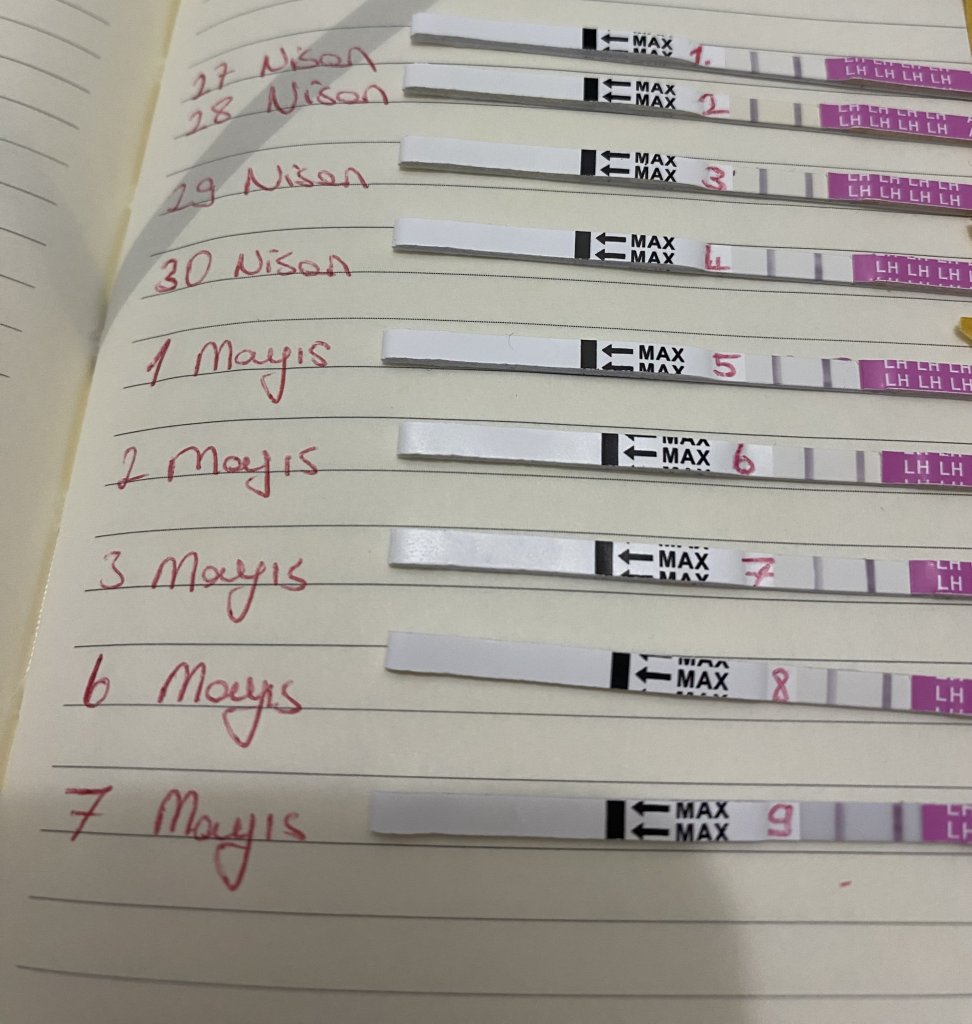 27 Nisan ← MAX MAX 1. LH LH LH LH LH LH LH LH
28 Nisan ← MAX ← MAX 2 LH LH LH LH LH LH LH LH
29 Nisan ← MAX ← MAX 3 LH LH LH LH LH LH LH LH
30 Nisan ← MAX ← MAX 4 LH LH LH
1 Mayıs ← MAX ← MAX 5 LH LH LH LH LH LH
2 Mayıs MAX ← MAX 6 LH LH
3 Mayıs ← MAX MAX 7 LH LH
6 Mayıs MAX ← MAX 8 LH
7 Mayıs ← MAX ← MAX 9 LH LH